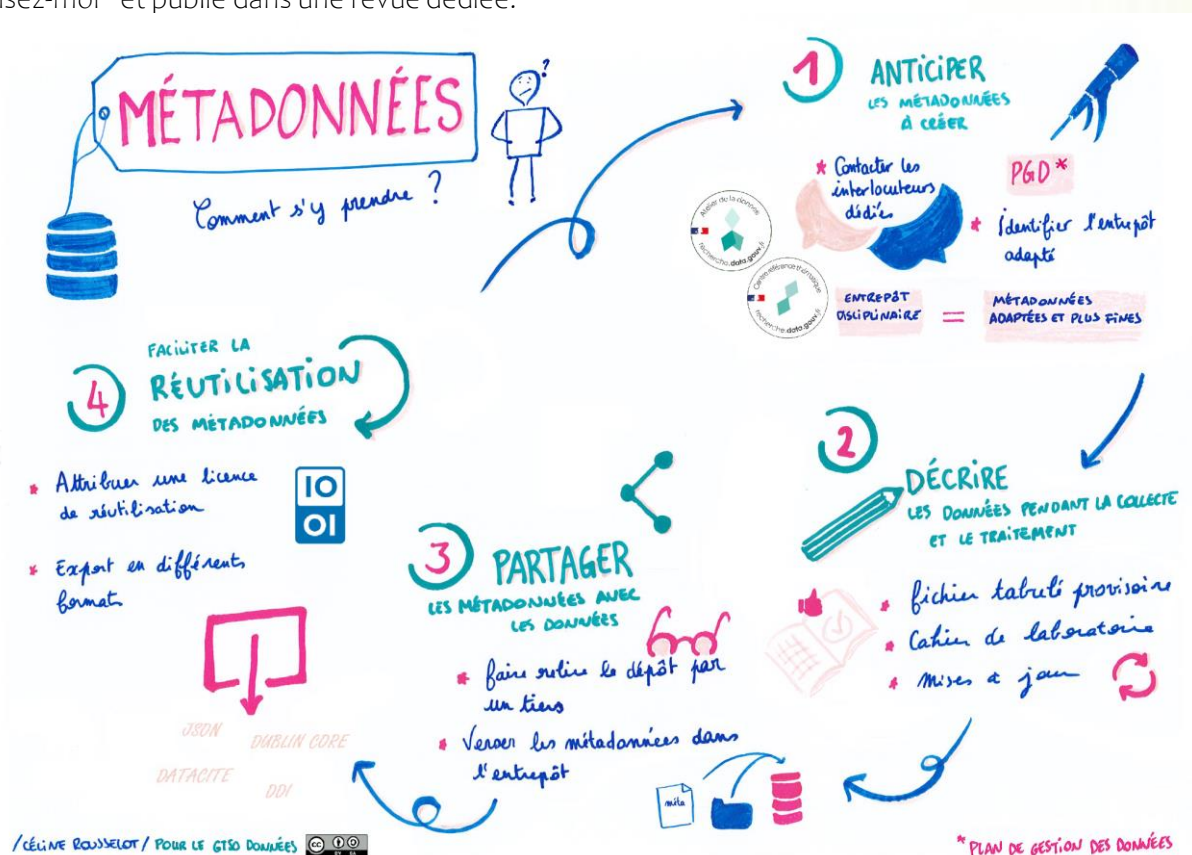 isez-moi" et publié dans une revue dédiée.
MÉTADONNÉES
?
Comment s'y prendre ?
1
ANTICIPER
LES MÉTADONNÉES
À CRÉER
* Contacter les
interlocuteurs
dédiés
PGD*
* Identifier l'entrepôt
adapté
Atelier de la donnée
recherche.data.gouv.fr
Centre référence thématique
recherche.data.gouv.fr
ENTREPÔT
DISCIPLINAIRE
=
MÉTADONNÉES
ADAPTÉES ET PLUS FINES
2
DÉCRIRE
LES DONNÉES PENDANT LA COLLECTE
ET LE TRAITEMENT
* fichier tabulé provisoire
* Cahier de laboratoire
* mises à jour
3
PARTAGER
LES MÉTADONNÉES AVEC
LES DONNÉES
* faire relire le dépôt par
un tiers
* Verser les métadonnées dans
l'entrepôt
méta
4
FACILITER LA
RÉUTILISATION
DES MÉTADONNÉES
* Attribuer une licence
de réutilisation
IO
OI
* Export en différents
formats
JSON
DUBLIN CORE
DATACITE
DDI
/CÉLINE ROUSSELOT/ POUR LE GTSO DONNÉES
CC BY SA
*PLAN DE GESTION DES DONNÉES